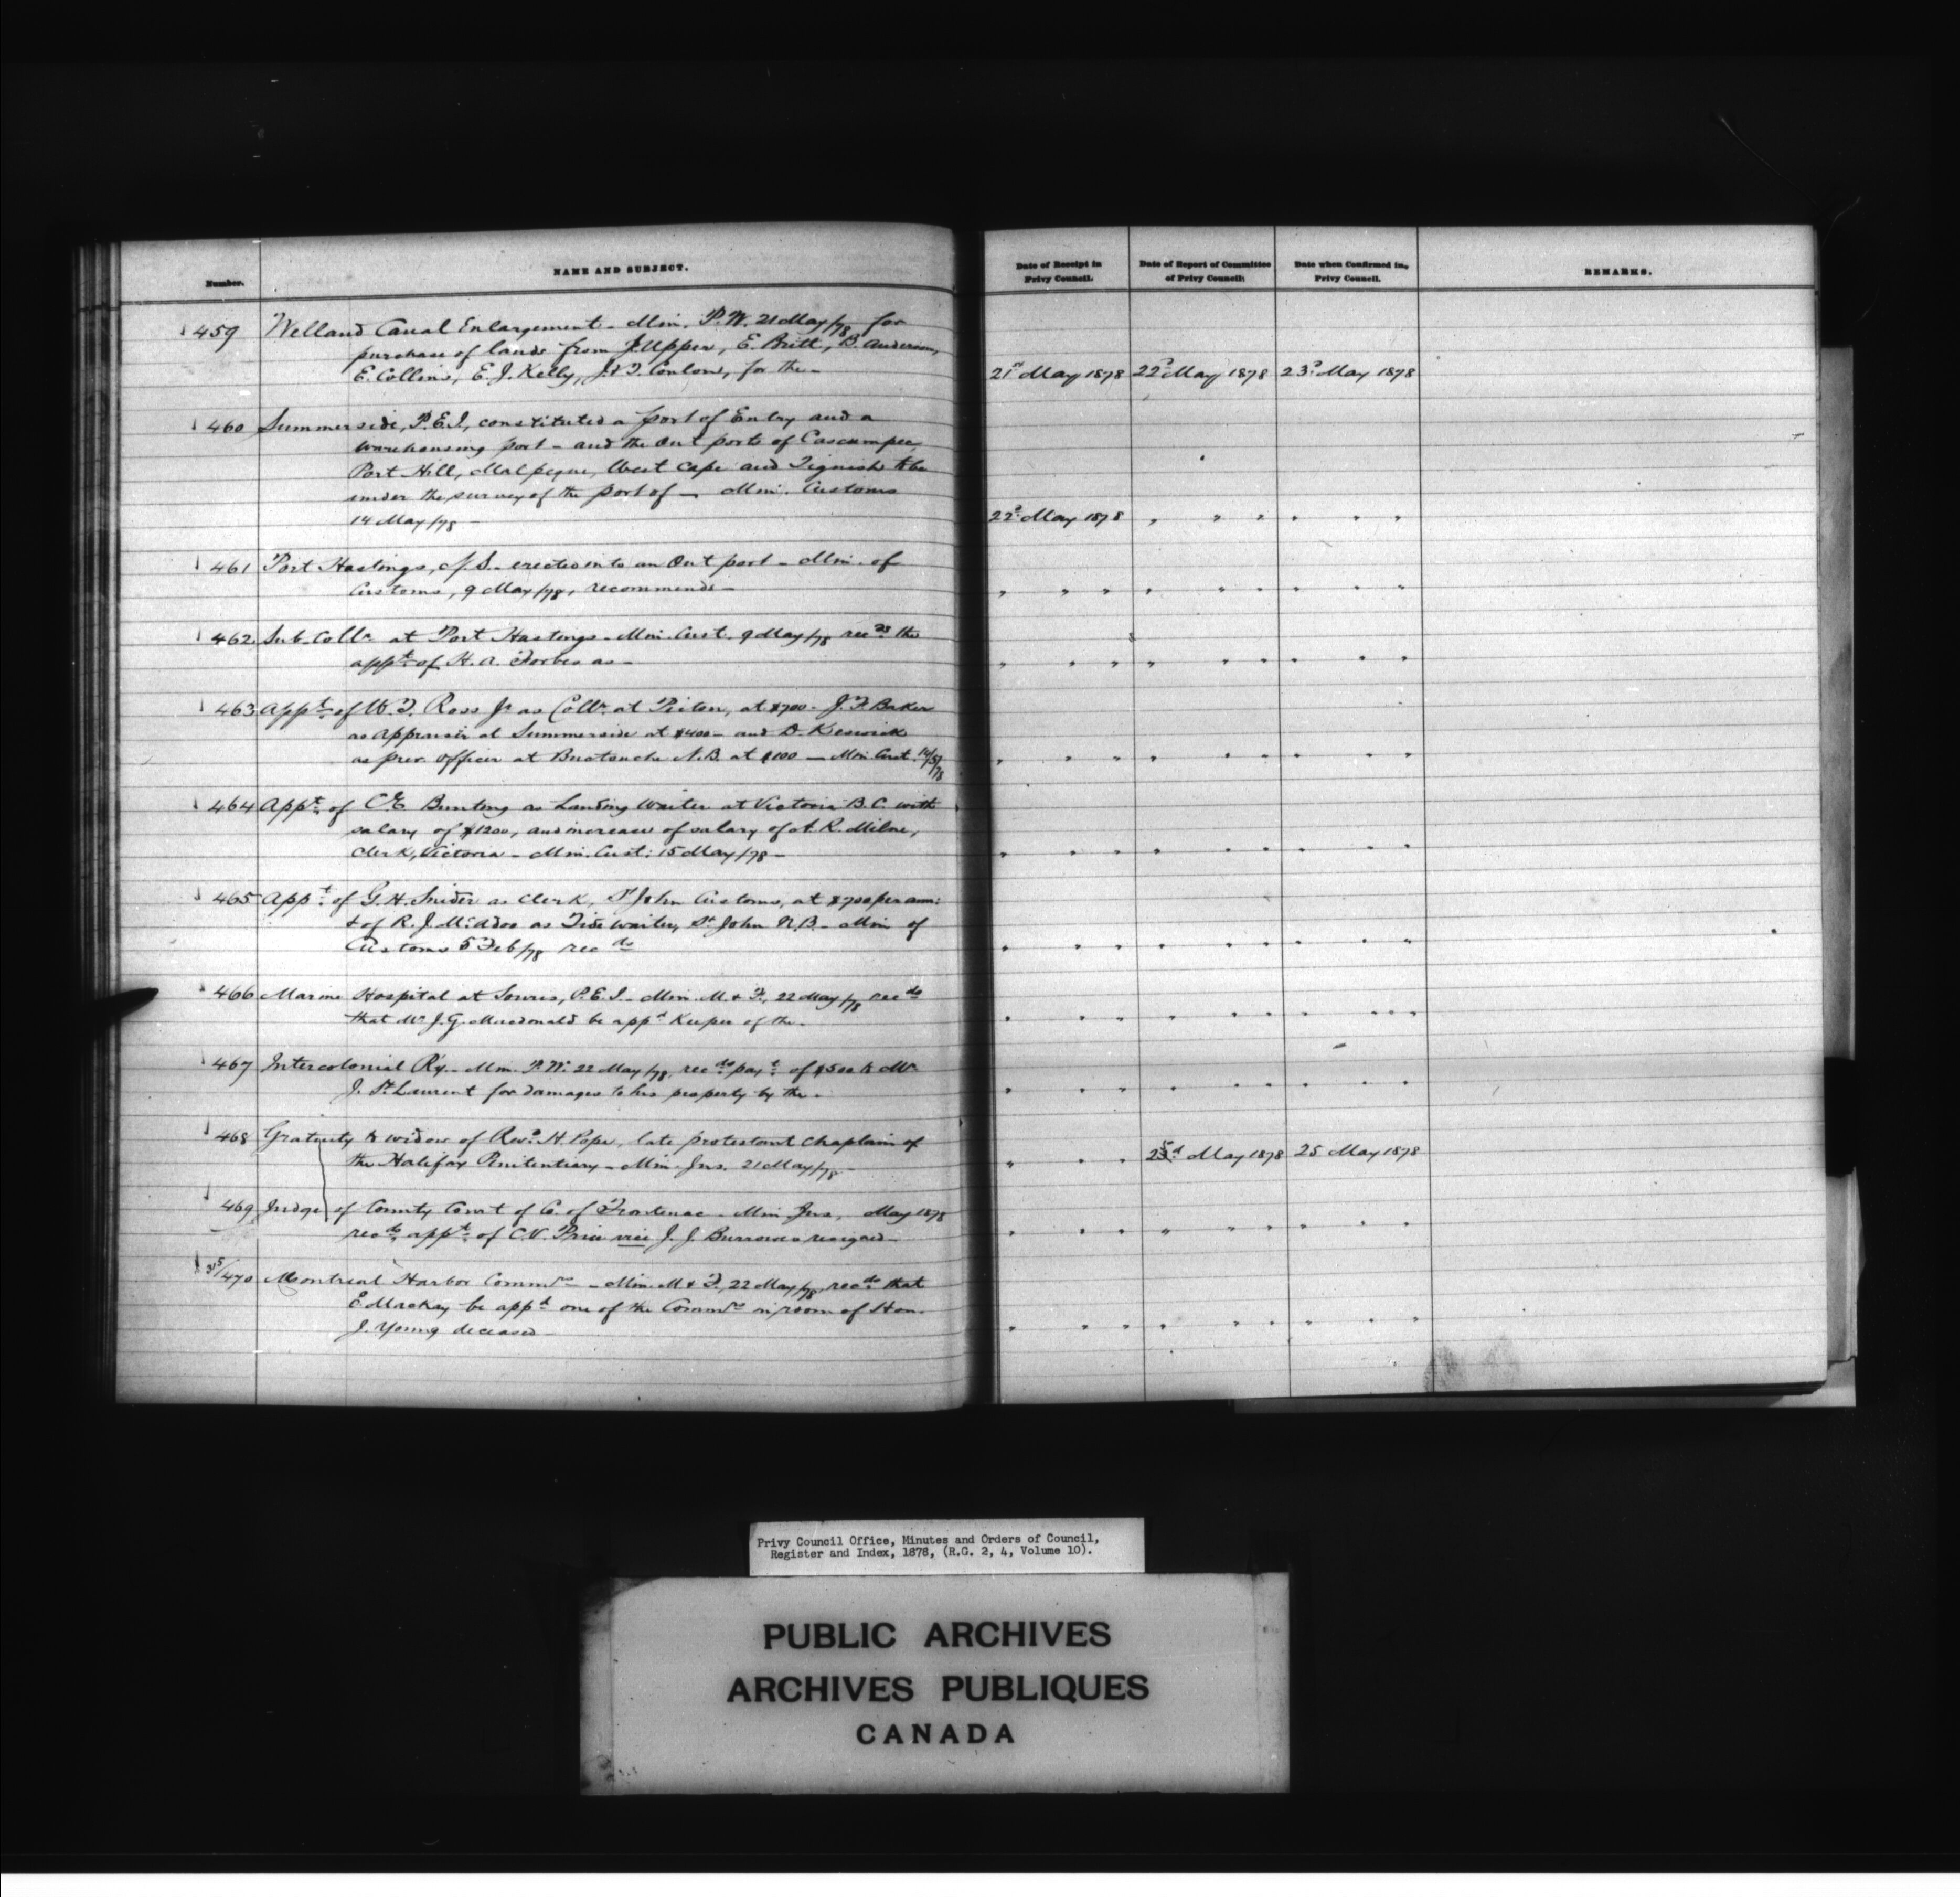 Number.
NAME AND SUBJECT.
Date of Receipt in Privy Council.
Date of Report of Committee of Privy Council.
Date when Confirmed in Privy Council.
REMARKS.
459 Welland Canal Enlargement - Min. P.W. 21 May/78 for
purchase of lands from J. Upper, E. Britt, B. Anderson,
E. Collins, E. J. Kelly, J. & T. Conlon, for the -
21st May 1878 22d May 1878 23d May 1878
460 Summerside, P.E.I., constituted a port of Entry and a
warehousing port - and the Out ports of Cascumpec,
Port Hill, Malpeque, West Cape and Tignish to be
under the survey of the port of - Min. Customs
14 May/78 -
22d May 1878 " " " " " "
461 Port Hastings, N.S. - erected into an Out port - Min. of
Customs, 9 May/78, recommends -
" " " " " " " " "
462 Sub-Collr. at Port Hastings - Min. Cust. 9 May/78 recds the
appt. of H. A. Forbes as -
" " " " " " " " "
463 Appt. of W. T. Ross Jr as Collr. at Pictou, at $700 - J. F. Baker
as Appraiser at Summerside at $400 - and D. Keswick
as prev. officer at Buctouche N.B. at $100 - Min. Cust. 14/5/78
" " " " " " " " "
464 Appt. of C. E. Bunting as Landing Waiter at Victoria B.C. with
salary of $1200, and increase of salary of A. R. Milne,
Clerk, Victoria - Min. Cust: 15 May/78 -
" " " " " " " " "
465 Appt. of G. H. Snider as Clerk, St John Customs, at $700 per ann:
& of R. J. McAdoo as Tide waiter, St John N.B. - Min of
Customs 5 Feb/78 recds
" " " " " " " " "
466 Marine Hospital at Souris, P.E.I. - Min. M & F., 22 May/78 recds
that Mr J. G. Macdonald be appd Keeper of the -
" " " " " " " " "
467 Intercolonial Ry. - Min. P.W. 22 May/78, recds payt. of $500 to Mr
J. St. Laurent for damages to his property by the -
" " " " " " " " "
468 Gratuity to widow of Revd. H. Pope, late protestant Chaplain of
the Halifax Penitentiary - Min. Jus. 21 May/78 -
" " " 25d May 1878 25 May 1878
469 Judge of County Court of C. of Frontenac - Min Jus, May 1878
recds appt. of C. V. Price vice J. J. Burrowes resigned -
" " " " " " " " "
470 Montreal Harbor Commrs - Min. M & F., 22 May/78, recds that
E Mackay be appd one of the Commrs in room of Hon.
J. Young deceased -
" " " " " " " " "
Privy Council Office, Minutes and Orders of Council,
Register and Index, 1878, (R.G. 2, 4, Volume 10).
PUBLIC ARCHIVES
ARCHIVES PUBLIQUES
CANADA